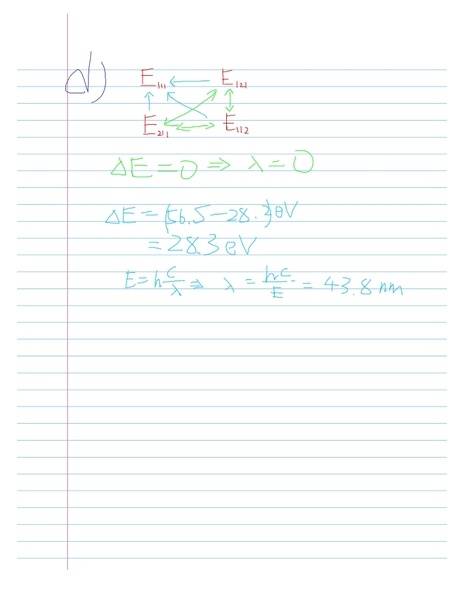 d)
E₁₁₁ ← E₁₂₁
E₂₁₁ E₁₁₂
ΔE = 0 ⇒ λ = 0
ΔE = (56.5 - 28.2) eV
= 28.3 eV
E = h c/λ ⇒ λ = hc/E = 43.8 nm